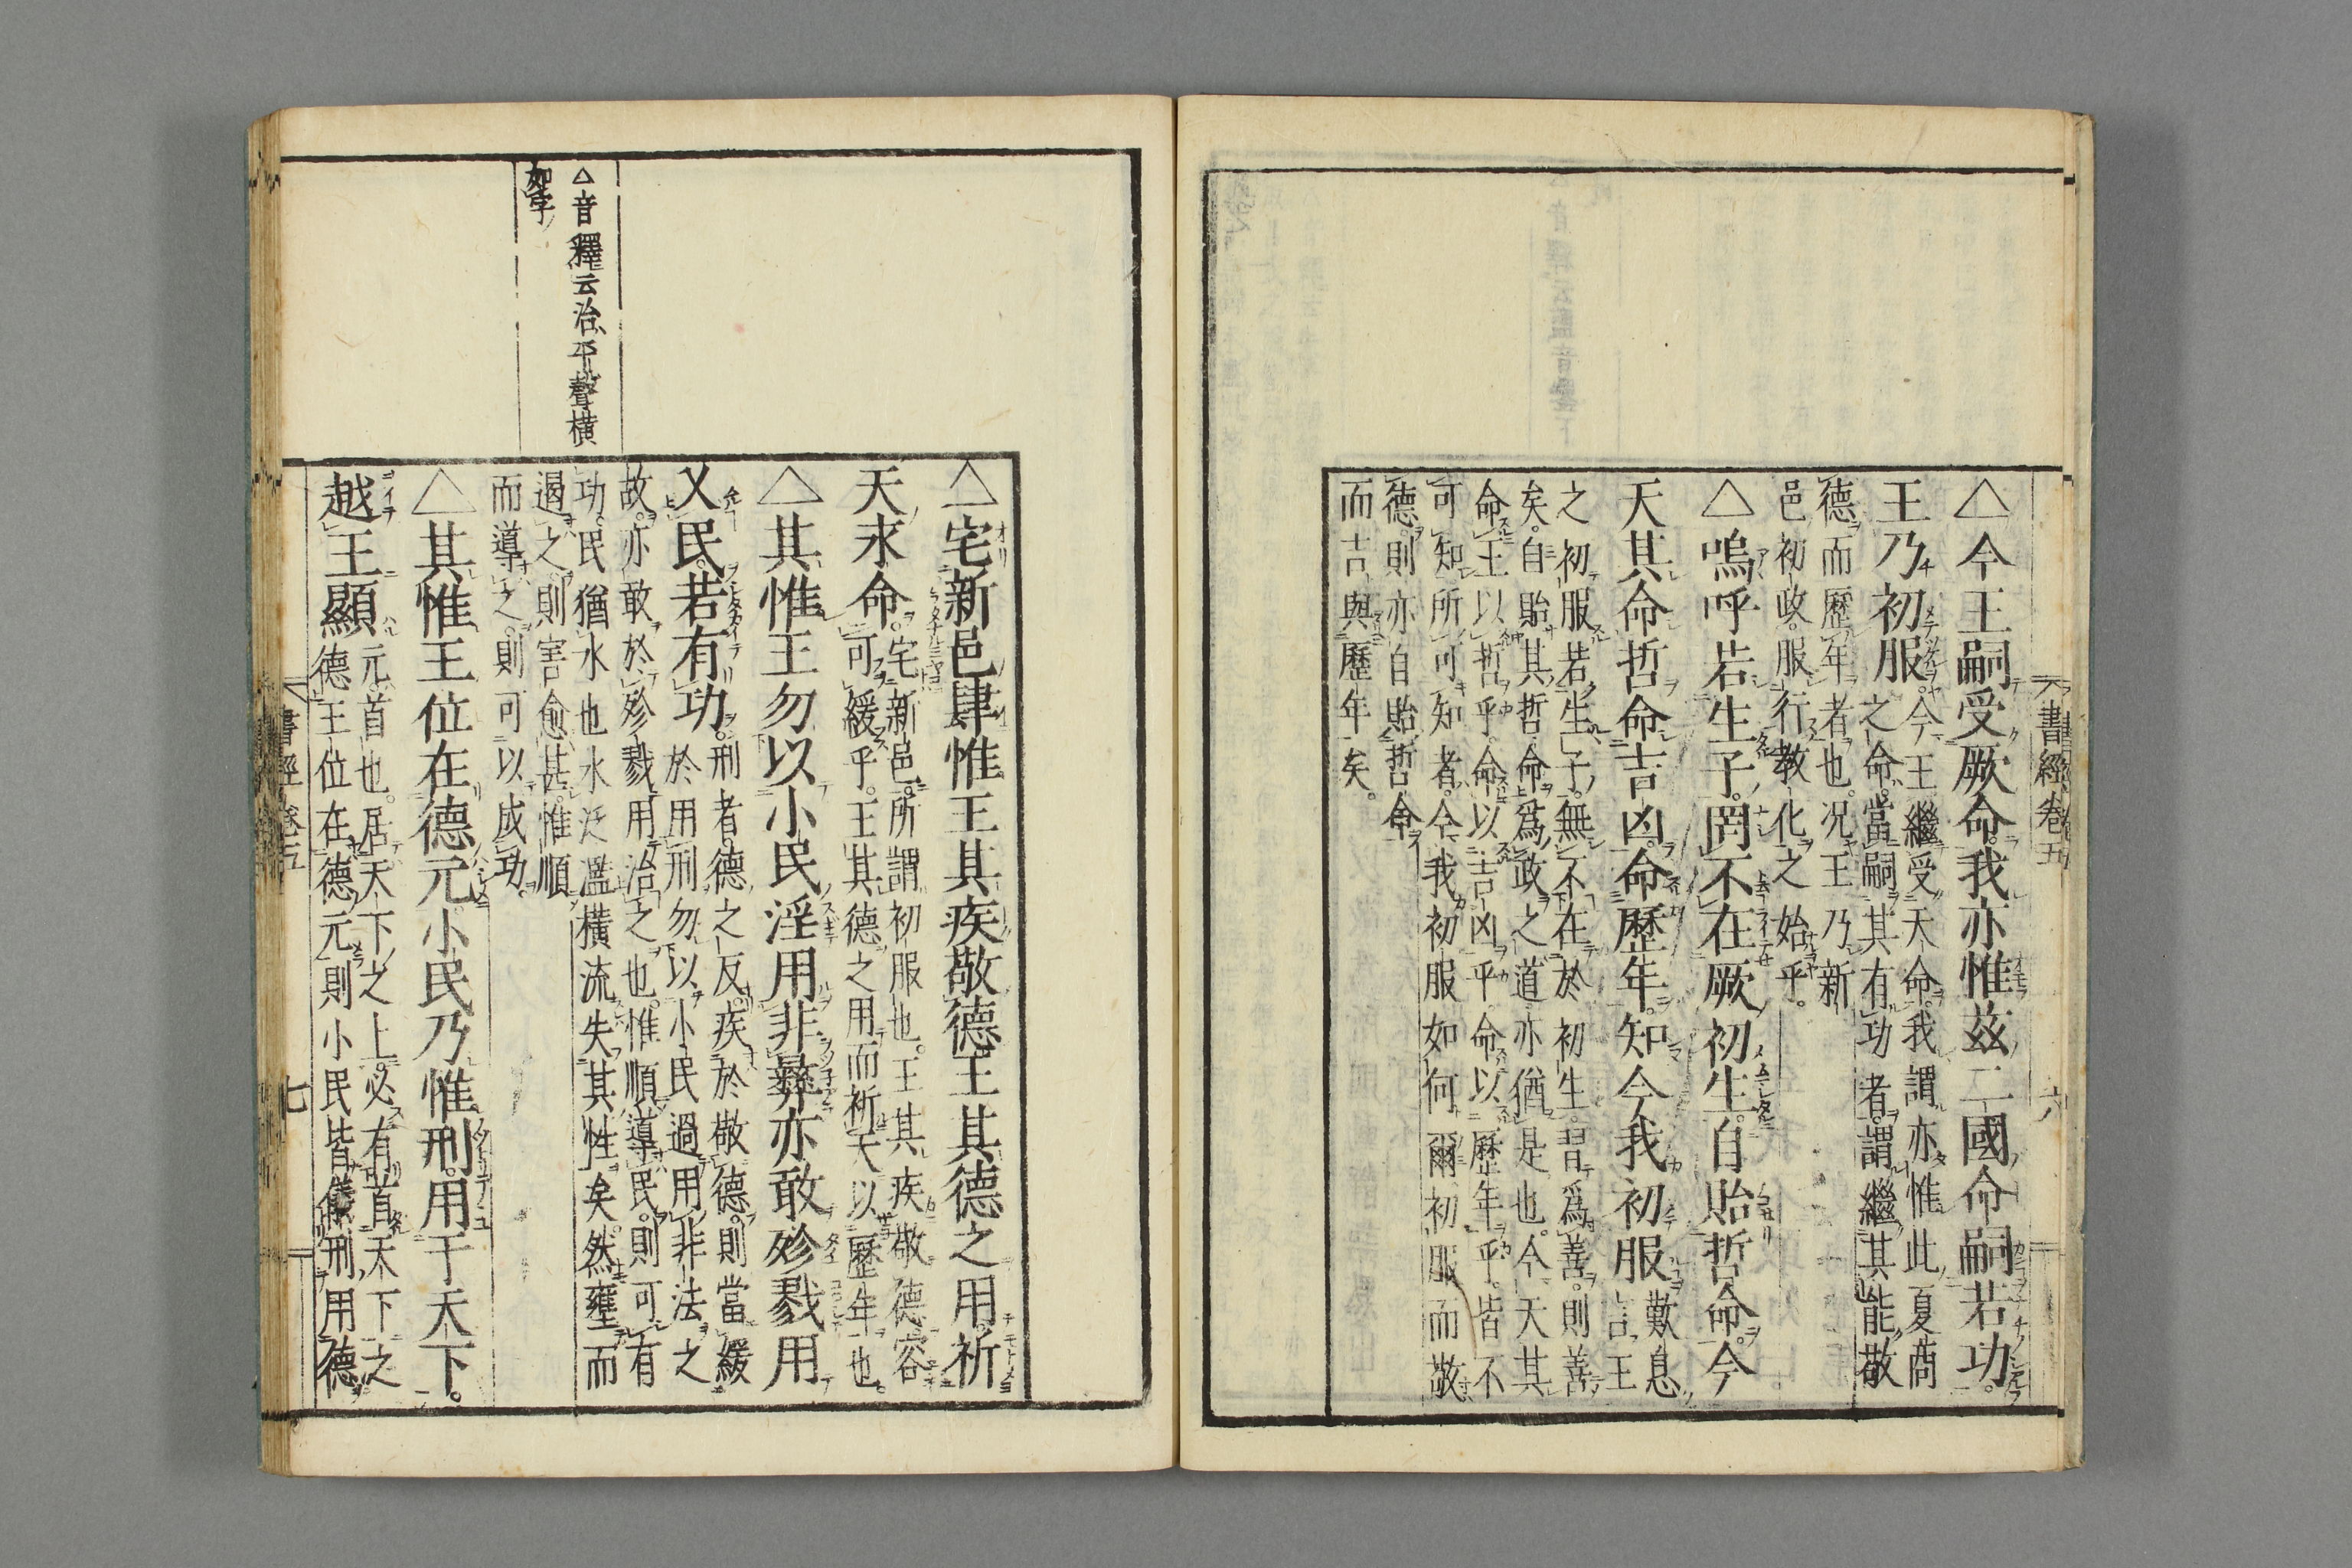 書經卷五 六
△今王嗣受厥命。我亦惟茲二國命嗣若功。
王乃初服。今王繼受天命。我謂亦惟此夏商
之命。當嗣其有功者。謂繼其能敬
德而歷年者也。况王乃新
邑初政。服行教化之始乎。
△嗚呼若生子。罔不在厥初生。自貽哲命。今
天其命哲命吉凶。命歷年。知今我初服歎息
言王
之初服若生子。無不在於初生。習爲善。則善
矣。自貽其哲命。爲政之道亦猶是也。今天其
命王以哲乎。命以吉凶乎。命以歷年乎。皆不
可知。所可知者。今我初服如何爾。初服而敬
德。則亦自貽哲命
而吉與歷年矣。
△宅新邑肆惟王其疾敬德王其德之用。祈
天永命。宅新邑。所謂初服也。王其疾敬德容
可緩乎。王其德之用而祈天以歷年也。
△其惟王勿以小民淫用非彝。亦敢殄戮用
乂民。若有功。刑者。德之反。疾於敬德。則當緩
於用刑勿以小民過用非法之
故。亦敢於殄戮用治之也。惟順導民。則可有
功。民猶水也水泛濫橫流失其性矣。然壅而
遏之。則害愈甚。惟順
而導之。則可以成功。
△音釋云治平聲橫
如字
△其惟王位在德元。小民乃惟刑。用于天下。
越王顯元。首也。居天下之上。必有首天下之
德王位在德元則小民皆儀刑用德
書經卷五 七